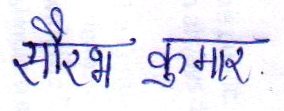 सौरभ कुमार.